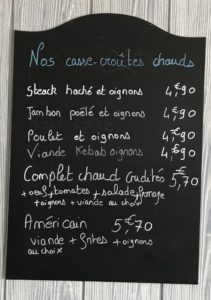 Nos casse-croûtes chauds
Steack haché et oignons 4,€90
Jambon poêlé et oignons 4,€90
Poulet et oignons 4,€90
Viande Kebab oignons 4,€90
Complet chaud crudités 5,€70
+ oeuf + tomates + salade fromage
+ oignons + viande au choix
Américain 5€70
viande + frites + oignons
au choix